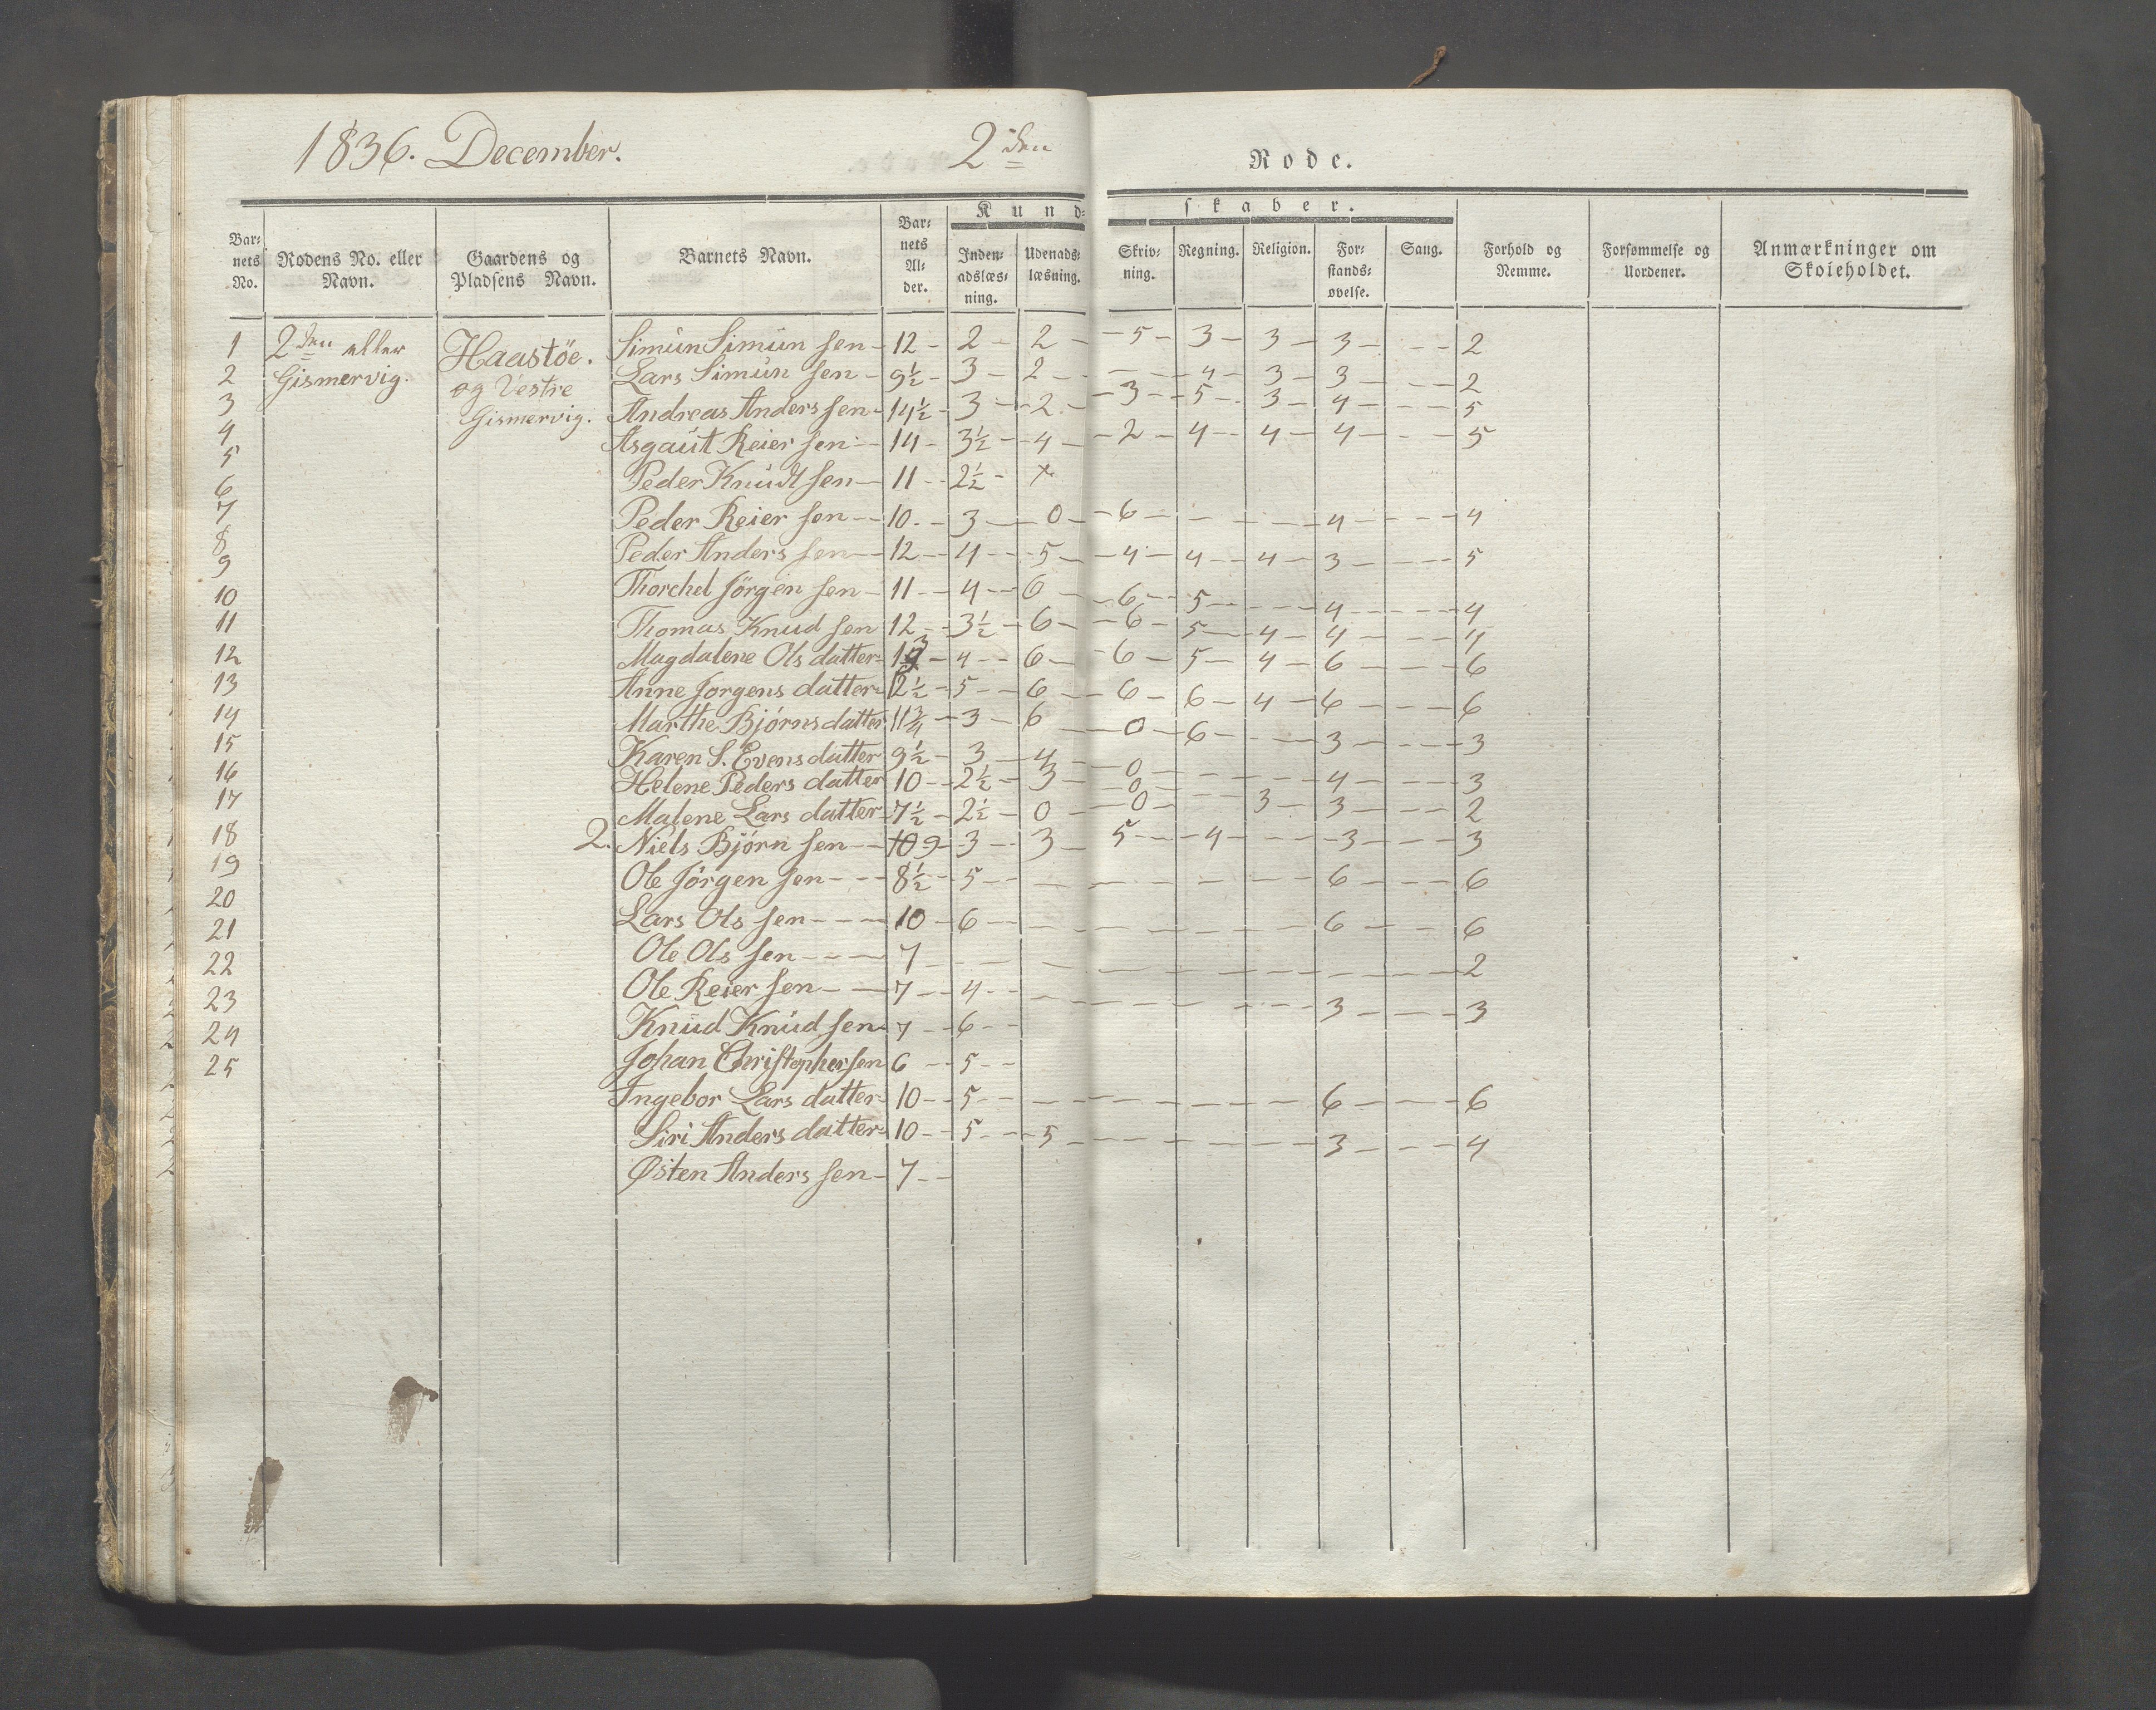 1836. December. 2den Rode.
Kund- skaber.
Bar-nets No. | Rodens No. eller Navn. | Gaardens og Pladsens Navn. | Barnets Navn. | Bar-nets Al-der. | Inden-adslæs-ning. | Udenads-læsning. | Skriv-ning. | Regning. | Religion. | For-stands-øvelse. | Sang. | Forhold og Nemme. | Forsømmelse og Uordener. | Anmærkninger om Skoleholdet.
1 2den eller Haastöe. Simün Simün sen - 12 - 2 - 2 - - 5 - 3 - 3 - 3 - - - 2
2 Gismervig. og Vestre Lars Simün sen - 9½ - 3 - 2 - - - - 4 - 3 - 3 - - - 2
3 Gismervig. Andreas Anders sen - 14½ - 3 - 2 - - 3 - 5 - 3 - 4 - - - 5
4 Asgaüt Reier sen - 14 - 3½ - 4 - - 2 - 4 - 4 - 4 - - - 5
5 Peder Knüdt sen - 11 - 2½ - x
6 Peder Reier sen - 10. - 3 - 0 - - 6 - - - - 4 - - - 4
7 Peder Anders sen - 12 - 4 - 5 - - 4 - 4 - 4 - 3 - - - 5
8 Thorchel Jörgen sen - 11 - 4 - 6 - 6 - 5 - - - 4 - - - 4
9 Thomas Knud sen 12 - 3½ - 6 - - 6 - 5 - 4 - 4 - - - 4
10 Magdalene Ols datter - 13 - 4 - 6 - - 6 - 5 - 4 - 6 - - - 6
11 Anne Jorgens datter - 12½ - 5 - 6 - 6 - 6 - 4 - 6 - - - 6
12 Marthe Bjórns datter 11¾ - 3 - 6 - 0 - 6 - - - 3 - - - 3
13 Karen S. Evens datter 9½ - 3 - 4 - 0 - - - - 4 - - - 3
14 Helene Peders datter 10 - 2½ - 3 - - 0 - - -
15 Malene Lars datter - 7½ - 2½ - 0 - - 0 - 3 - 3 - - - 2
16 2. Niels Bjórn sen - - 10 9 - 3 - 3 - 5 - - 4 - - - 3 - - - 3
17 Ole Jörgen sen - - - 8½ - 5 - - - - - - - 6 - - - 6
18 Lars Ols sen - - - - 10 - 6 - - - - - - - 6 - - 6
19 Ole Ols sen - - - - 7 - - - - - - - - - - - 2
20 Ole Reier sen - - 7 - 4 - - - - - - - 3 - - - 3
21 Knüd Knüd sen - 7 - 6 - -
22 Johan Christophersen 6 - 5 - -
23 Ingebor Lars datter - 10 - 5 - - - - - - - 6 - - - 6
24 Siri Anders datter - 10 - 5 - - 5 - - - - - - 3 - - - 4
25 Østen Anders sen - 7 - -